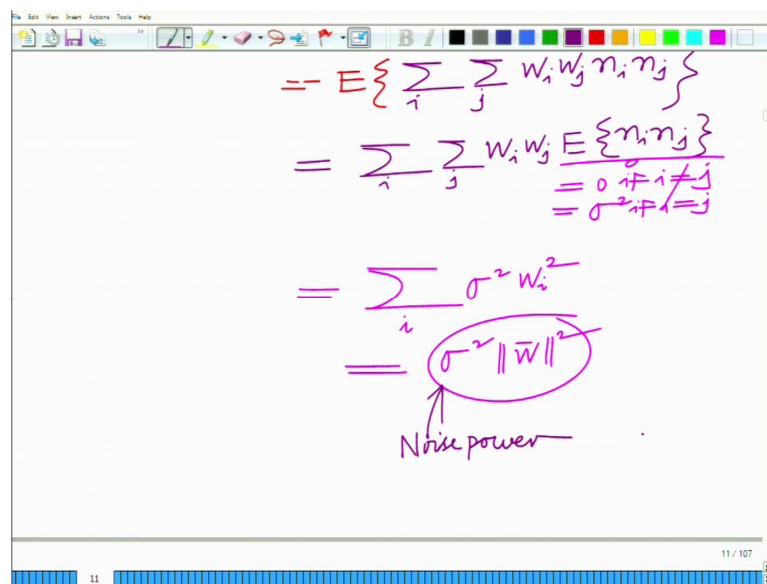 File Edit View Insert Actions Tools Help
B I
=- E{ ∑_i ∑_j W_i W_j n_i n_j }
= ∑_i ∑_j W_i W_j E{n_i n_j}
= 0 if i ≠ j
= σ² if i = j
= ∑_i σ² W_i²
= σ² ‖w̄‖²
Noise power
11 / 107
11